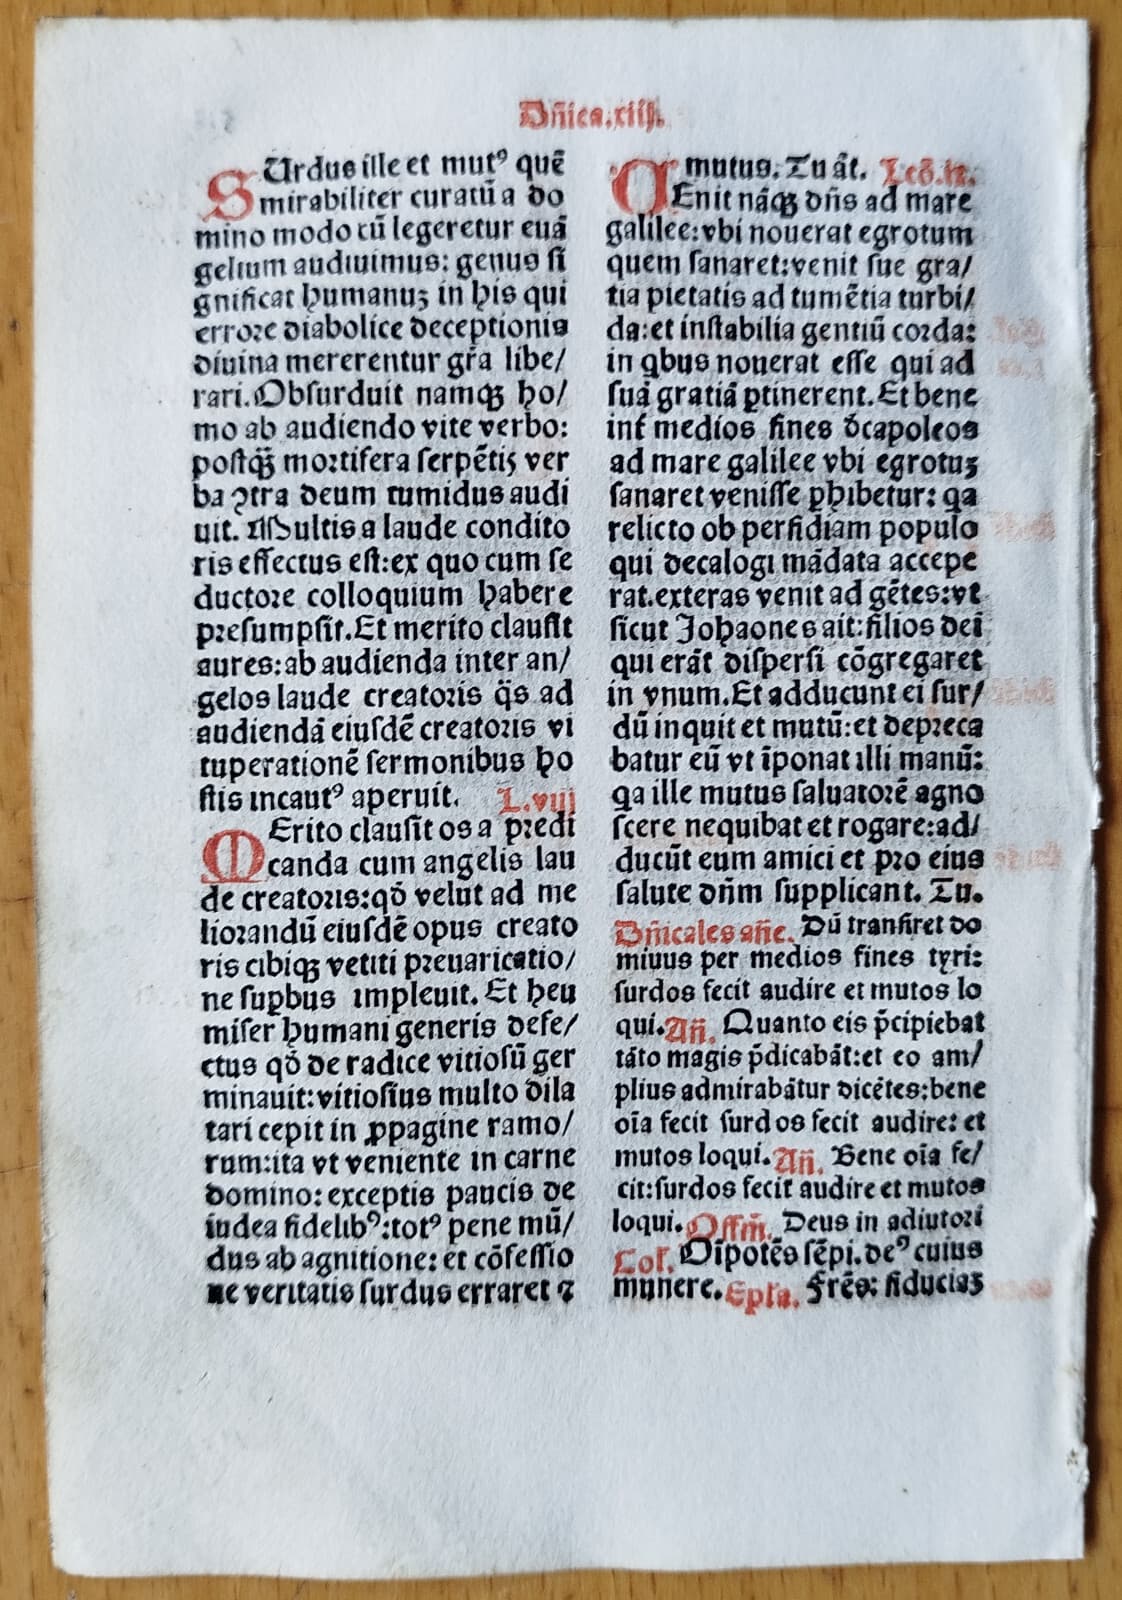 Dñica.xiiȷ.
SUrdus ille et mutꝰ quē
mirabiliter curatū a do
mino modo cū legeretur euā
gelium audiuimus: genus ſi
gnificat humanuꝫ in his qui
errore diabolice deceptionis
diuina mererentur gr̄a libe/
rari. Obſurduit namqꝫ ho/
mo ab audiendo vite verbo:
poſtq̄ꝫ mortifera ſerpētis ver
ba ꝯtra deum tumidus audi
uit. Multis a laude condito
ris effectus eſt:ex quo cum ſe
ductore colloquium habere
preſumpſit. Et merito clauſit
aures:ab audienda inter an/
gelos laude creatoris q̄s ad
audiendā eiuſdē creatoris vi
tuperationē ſermonibus ho
ſtis incautꝰ aperuit. L.viij
MErito clauſit os a predi
canda cum angelis lau
de creatoris:qð velut ad me
liorandū eiuſdē opus creato
ris cibiqꝫ vetiti preuaricatio/
ne ſuꝑbus impleuit. Et heu
miſer humani generis defe/
ctus qð de radice vitioſū ger
minauit:vitioſius multo dila
tari cepit in ꝓpagine ramo/
rum:ita vt veniente in carne
domino: exceptis paucis de
iudea fidelibꝰ:totꝰ pene mū/
dus ab agnitione: et cōfeſſio
ne veritatis ſurdus erraret ⁊
mutus. Tu āt. Lcō.ix.
UEnit nāqꝫ dn̄s ad mare
galilee:vbi nouerat egrotum
quem ſanaret:venit ſue gra/
tia pietatis ad tumētia turbi/
da:et inſtabilia gentiū corda:
in qbus nouerat eſſe qui ad
ſuā gratiā ꝑtinerent. Et bene
int̄ medios fines d̄capoleos
ad mare galilee vbi egrotuꝫ
ſanaret veniſſe ꝑhibetur: qa
relicto ob perfidiam populo
qui decalogi mādata accepe
rat.exteras venit ad gētes:vt
ſicut Johaones ait:filios dei
qui erāt diſperſi cōgregaret
in vnum. Et adducunt ei ſur/
dū inquit et mutū:et depreca
batur eū vt īponat illi manū:
qa ille mutus ſaluatorē agno
ſcere nequibat et rogare:ad/
ducūt eum amici et pro eius
ſalute dn̄m ſupplicant. Tu.
Dn̄icales añe. Dū tranſiret do
miuus per medios fines tyri:
ſurdos fecit audire et mutos lo
qui. Añ. Quanto eis p̄cipiebat
tāto magis p̄dicabāt:et eo am/
plius admirabātur dicētes:bene
oīa fecit ſurdos fecit audire: et
mutos loqui. Añ. Bene oīa fe/
cit:ſurdos fecit audire et mutos
loqui. Offm̄. Deus in adiutori
Col. Oīpotēs ſēpi. deꝰ cuius
munere. Epl̄a. Fr̄es: fiduciaꝫ